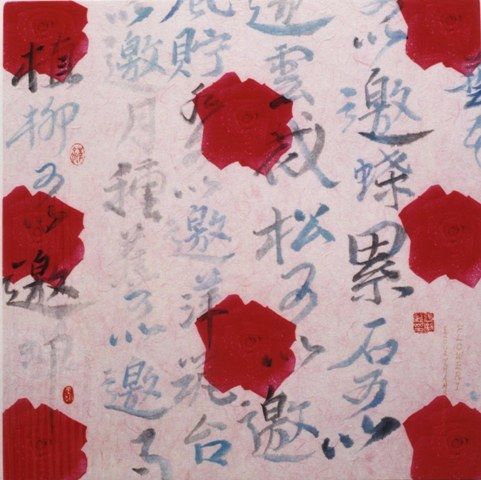 可以邀蝶累石可以
邀雲栽松可以邀
風貯水可以邀萍筑台
以邀月種蕉可以邀雨
植柳可以邀蟬
FLOWERY